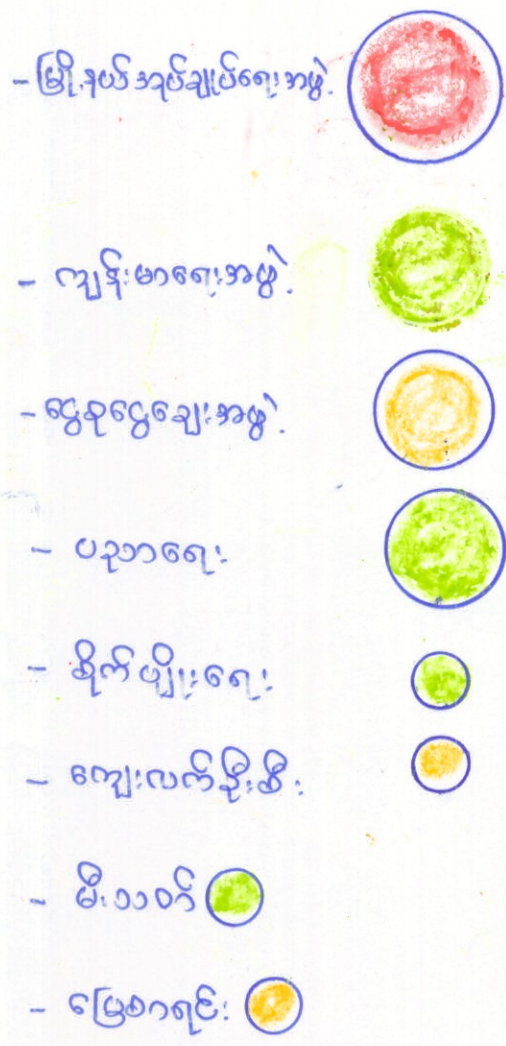 - မြို့နယ်အုပ်ချုပ်ရေးအဖွဲ့
- ကျန်းမာရေးအဖွဲ့
- ငွေစုငွေချေးအဖွဲ့
- ပညာရေး
- စိုက်ပျိုးရေး
- ကျေးလက်ဦးစီး
- မီးသတ်
- မြေစာရင်း